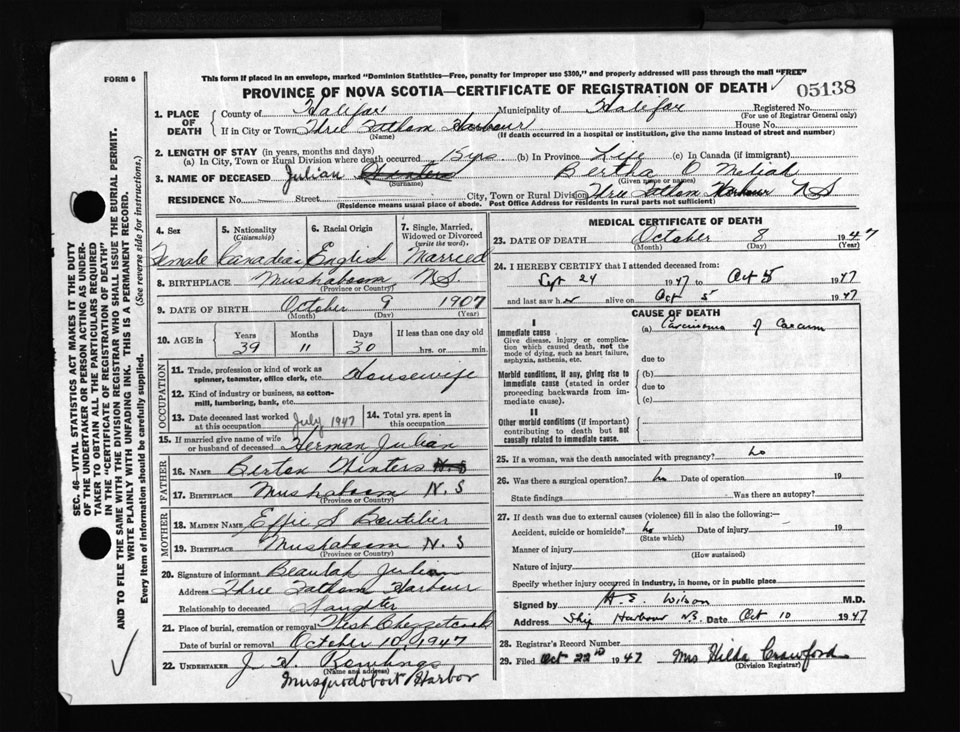 FORM 6
This form if placed in an envelope, marked "Dominion Statistics—Free, penalty for improper use $300," and properly addressed will pass through the mail "FREE"
PROVINCE OF NOVA SCOTIA—CERTIFICATE OF REGISTRATION OF DEATH 05138
1. PLACE OF DEATH
County of Halifax Municipality of Halifax Registered No.
(For use of Registrar General only)
If in City or Town Three Fathom Harbour House No.
(Name) (If death occurred in a hospital or institution, give the name instead of street and number)
2. LENGTH OF STAY (in years, months and days)
(a) In City, Town or Rural Division where death occurred 15 yrs (b) In Province Life (c) In Canada (if immigrant)
3. NAME OF DECEASED Julian Winters Bertha O
(Surname) (Given name or names)
RESIDENCE No. Street City, Town or Rural Division Three Fathom Harbour NS
(Residence means usual place of abode. Post Office Address for residents in rural parts not sufficient)
4. Sex 5. Nationality (Citizenship) 6. Racial Origin 7. Single, Married, Widowed or Divorced (write the word).
Female Canadian English Married
8. BIRTHPLACE Mushaboom N.S.
(Province or Country)
9. DATE OF BIRTH October 9 1907
(Month) (Day) (Year)
10. AGE in Years Months Days If less than one day old
39 11 30 hrs. or min.
OCCUPATION
11. Trade, profession or kind of work as spinner, teamster, office clerk, etc. Housewife
12. Kind of industry or business, as cotton-mill, lumbering, bank, etc.
13. Date deceased last worked at this occupation July 1947 14. Total yrs. spent in this occupation
15. If married give name of wife or husband of deceased Herman Julian
FATHER
16. NAME Burton Winters N.S
17. BIRTHPLACE Mushaboom N.S
(Province or Country)
MOTHER
18. MAIDEN NAME Effie S Boutilier
19. BIRTHPLACE Mushaboom N.S
(Province or Country)
20. Signature of informant Beaulah Julian
Address Three Fathom Harbour
Relationship to deceased Daughter
21. Place of burial, cremation or removal West Chezzetcook
Date of burial or removal October 10, 1947
22. UNDERTAKER J Rowlings
(Name and address)
Musquodoboit Harbor
MEDICAL CERTIFICATE OF DEATH
23. DATE OF DEATH October 8 1947
(Month) (Day) (Year)
24. I HEREBY CERTIFY that I attended deceased from:
Sept 24 1947 to Oct 5 1947
and last saw her alive on Oct 5 1947
CAUSE OF DEATH
I
Immediate cause
Give disease, injury or complication which caused death, not the mode of dying, such as heart failure, asphyxia, asthenia, etc.
(a) Carcinoma of Caecum
due to
Morbid conditions, if any, giving rise to immediate cause (stated in order proceeding backwards from immediate cause).
(b)
due to
(c)
II
Other morbid conditions (if important) contributing to death but not causally related to immediate cause.
25. If a woman, was the death associated with pregnancy? no
26. Was there a surgical operation? no Date of operation 19
State findings Was there an autopsy?
27. If death was due to external causes (violence) fill in also the following:
Accident, suicide or homicide? no Date of injury 19
(State which)
Manner of injury
(How sustained)
Nature of injury
Specify whether injury occurred in industry, in home, or in public place
Signed by A. E. Wilson M.D.
Address Ship Harbour N.S. Date Oct 10 1947
28. Registrar's Record Number
29. Filed Oct 22nd 1947 Mrs Hilda Crawford
(Division Registrar)
SEC. 46—VITAL STATISTICS ACT MAKES IT THE DUTY
OF THE UNDERTAKER OR PERSON ACTING AS UNDER-
TAKER TO OBTAIN ALL THE PARTICULARS REQUIRED
IN THE "CERTIFICATE OF REGISTRATION OF DEATH"
AND TO FILE THE SAME WITH THE DIVISION REGISTRAR WHO SHALL ISSUE THE BURIAL PERMIT.
WRITE PLAINLY WITH UNFADING INK. THIS IS A PERMANENT RECORD.
Every item of information should be carefully supplied. (See reverse side for instructions.)